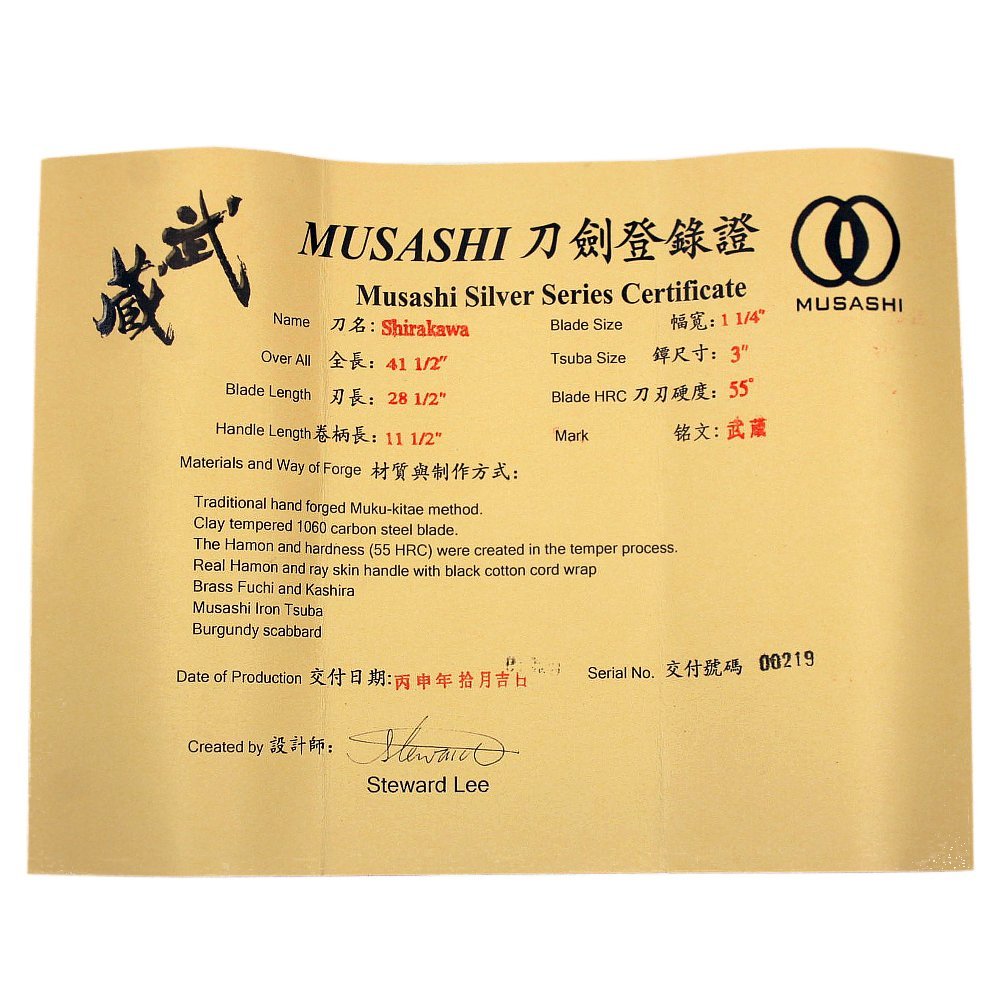 武蔵
MUSASHI 刀劍登錄證
MUSASHI
Musashi Silver Series Certificate
Name 刀名: Shirakawa Blade Size 幅寬: 1 1/4"
Over All 全長: 41 1/2" Tsuba Size 鐔尺寸: 3"
Blade Length 刃長: 28 1/2" Blade HRC 刀刃硬度: 55°
Handle Length 卷柄長: 11 1/2" Mark 铭文: 武蔵
Materials and Way of Forge 材質與制作方式:
Traditional hand forged Muku-kitae method.
Clay tempered 1060 carbon steel blade.
The Hamon and hardness (55 HRC) were created in the temper process.
Real Hamon and ray skin handle with black cotton cord wrap
Brass Fuchi and Kashira
Musashi Iron Tsuba
Burgundy scabbard
Date of Production 交付日期: 丙申年拾月吉日 Serial No. 交付號碼 00219
Created by 設計師: Steward
Steward Lee